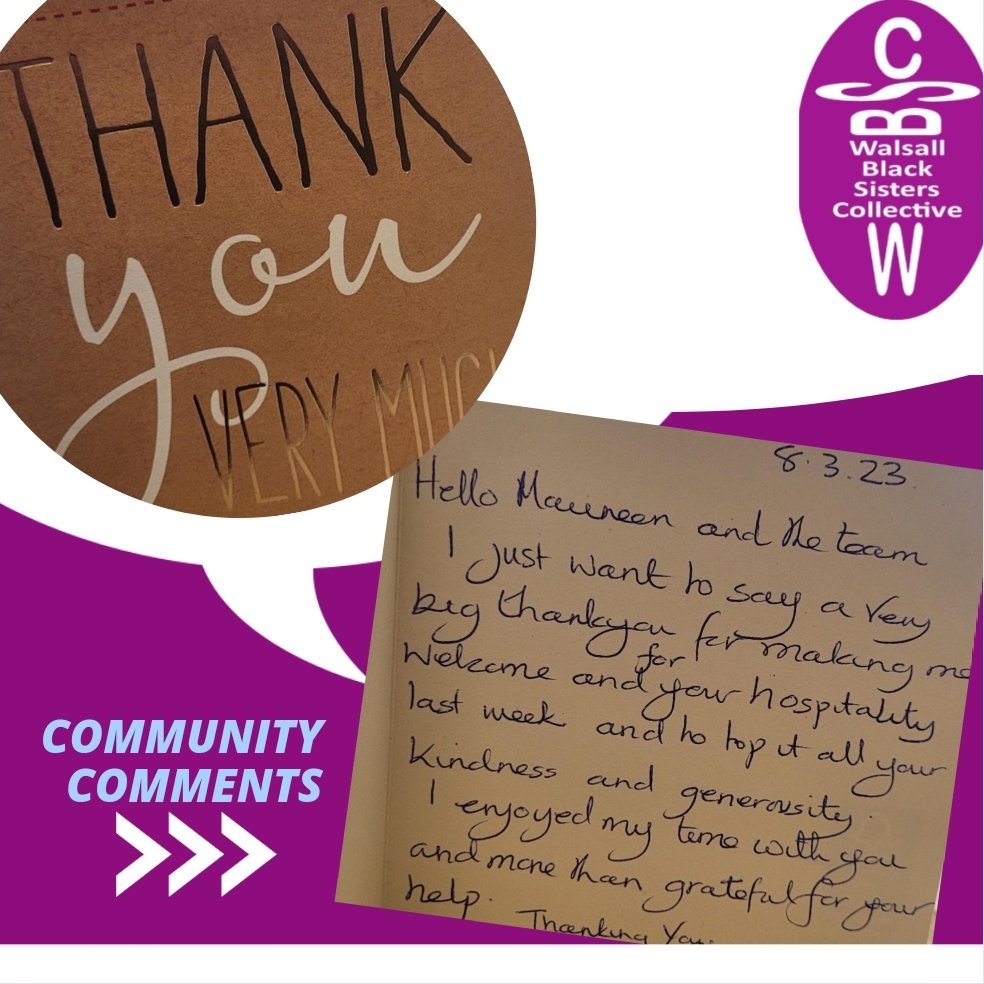 THANK
you
VERY MUCH
C
BS
Walsall
Black
Sisters
Collective
W
8.3.23.
Hello Maureen and the team
I just want to say a very
big thankyou for making me
welcome and for your hospitality
last week and to top it all your
kindness and generousity.
I enjoyed my time with you
and more than grateful for your
help. Thanking You.
COMMUNITY
COMMENTS